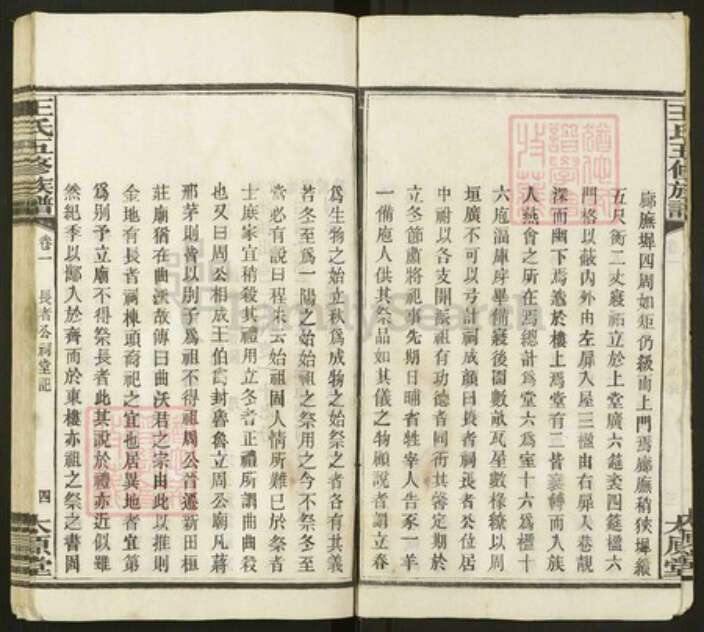 王氏五修族譜
廊廡墀四周如矩仍級而上門焉廊廡稍狹墀縱
五尺衡二丈寢祏立於上堂廣六筵袤四筵楹六
門格以蔽內外由左屏入屋三楹由右屏入巷覯
深而幽下焉庖於樓上焉堂有二皆襄轉而入族
人燕會之所在焉總計爲堂六爲室十六爲楹十
六庖湢庫庠畢備寢後園數畝瓦屋數椽繚以周
垣廣不可以弓計祠成顏曰長者祠長者公位居
中祔以各支開派祖有功德者同祈其蠲定期於
立冬節肅將祀事先期日晡省牲宰人告豕一羊
一備庖人供其祭品如其儀之物顧說者謂立春
太原堂
爲生物之始立秋爲成物之始祭之者各有其義
若冬至爲一陽之始始祖之祭用之今不祭冬至
當必有說曰程朱云始祖固人情所難已於祭者
士庶家宜稍殺其禮用立冬者正禮所謂曲曲殺
也又曰周公相成王伯禽封魯魯立周公廟凡蔣
邢茅則皆以別子爲祖不得祖周公晉遷新田桓
莊廟猶在曲沃故傳曰曲沃君之宗由此以推則
金地有長者祠棟頭裔祀之宜也居異地者宜第
爲別予立廟不得祭長者此其說於禮亦近似雖
然紀季以鄰入於齊而於東樓亦祖之祭之書固
王氏五修族譜
卷一
長者公祠堂記
四
太原堂